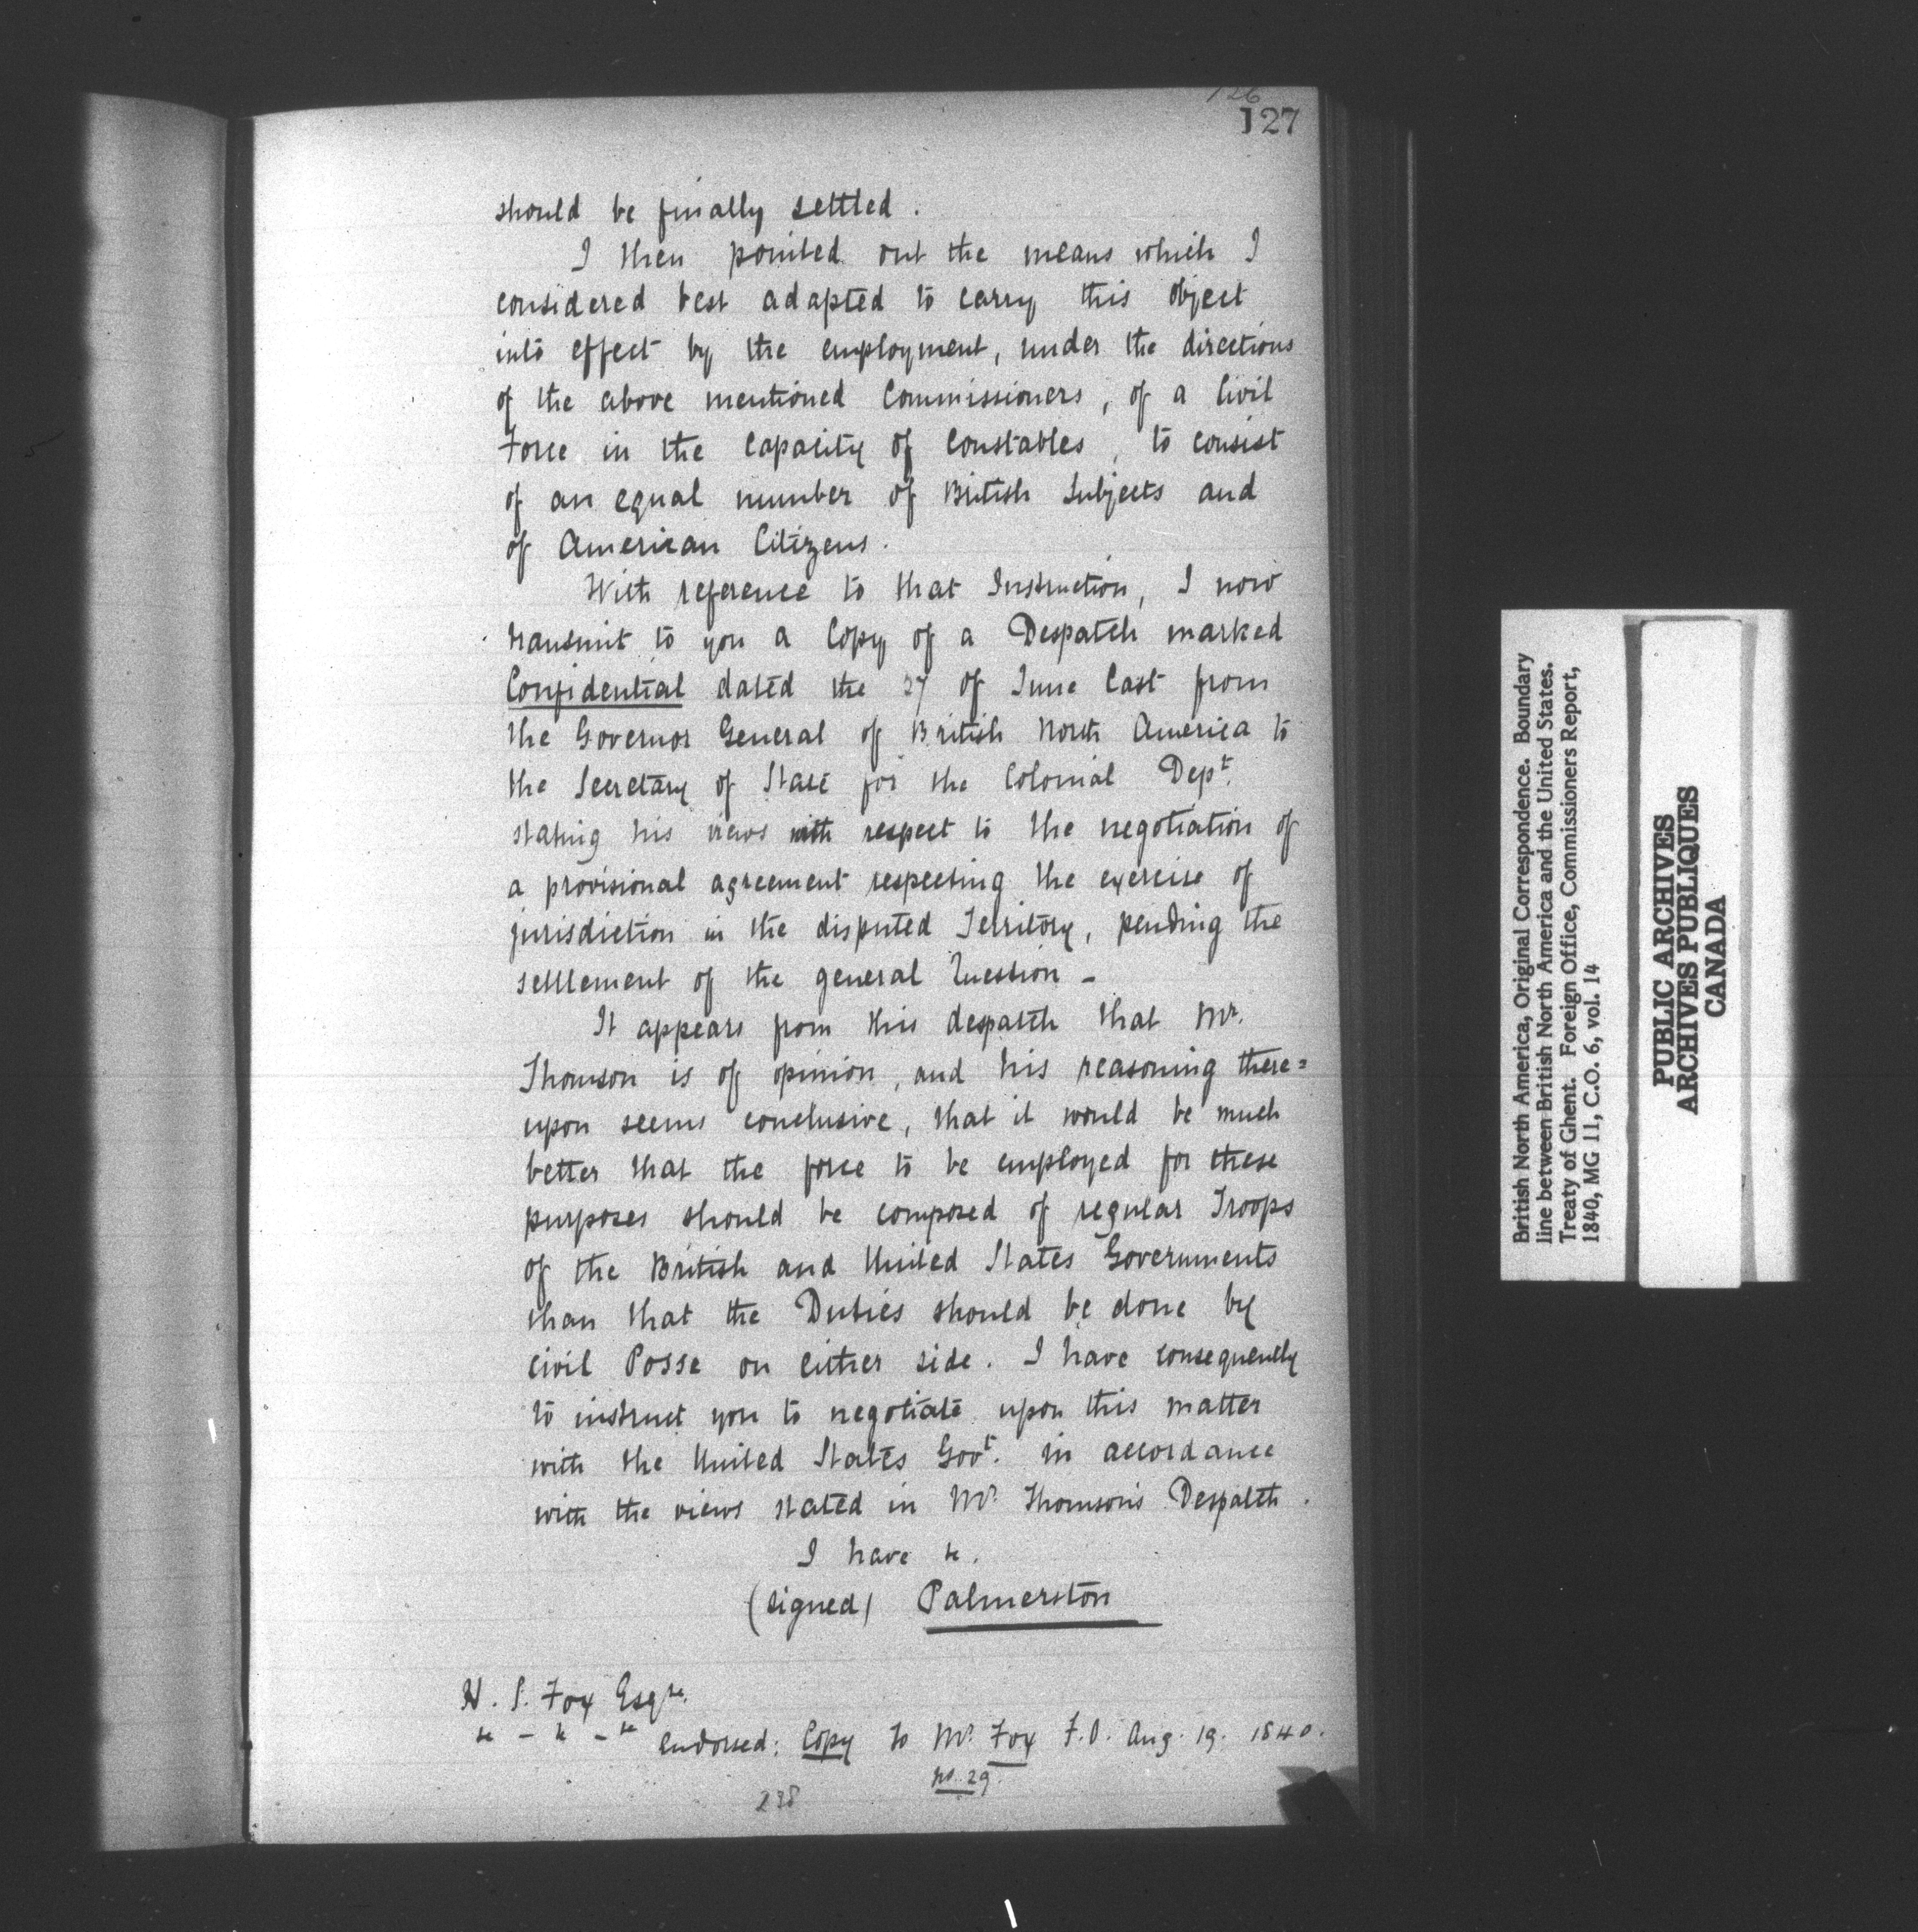 126
127
should be finally settled.
I then pointed out the means which I
considered best adapted to carry this object
into effect by the employment, under the directions
of the above mentioned Commissioners, of a Civil
Force in the capacity of Constables, to consist
of an equal number of British Subjects and
of American Citizens.
With reference to that Instruction, I now
transmit to you a Copy of a Despatch marked
Confidential dated the 27 of June last from
the Governor General of British North America to
the Secretary of State for the Colonial Dept.
stating his views with respect to the negotiation of
a provisional agreement respecting the exercise of
jurisdiction in the disputed Territory, pending the
settlement of the general Question -
It appears from this despatch that Mr.
Thomson is of opinion, and his reasoning there=
upon seems conclusive, that it would be much
better that the force to be employed for these
purposes should be composed of regular Troops
of the British and United States Governments
than that the Duties should be done by
civil Posse on either side. I have consequently
to instruct you to negotiate upon this matter
with the United States Govt. in accordance
with the views stated in Mr. Thomson's Despatch.
I have &c.
(signed) Palmerston
H. S. Fox Esqre.
&c - &c - &c
Endorsed: Copy to Mr. Fox F.O. Aug. 19. 1840.
No. 29.
238
British North America, Original Correspondence. Boundary
line between British North America and the United States.
Treaty of Ghent. Foreign Office, Commissioners Report,
1840, MG 11, C.O. 6, vol. 14
PUBLIC ARCHIVES
ARCHIVES PUBLIQUES
CANADA